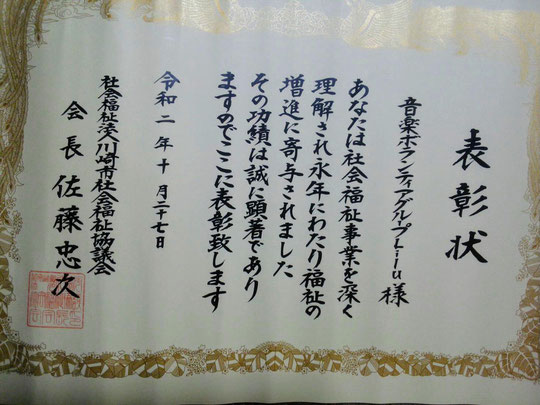 表彰状
音楽ボランティアグループLiu 様
あなたは社会福祉事業を深く
理解され永年にわたり福祉の
増進に寄与されました
その功績は誠に顕著であり
ますのでここに表彰致します
令和二年十月二十七日
社会福祉法人川崎市社会福祉協議会
会長 佐藤忠次